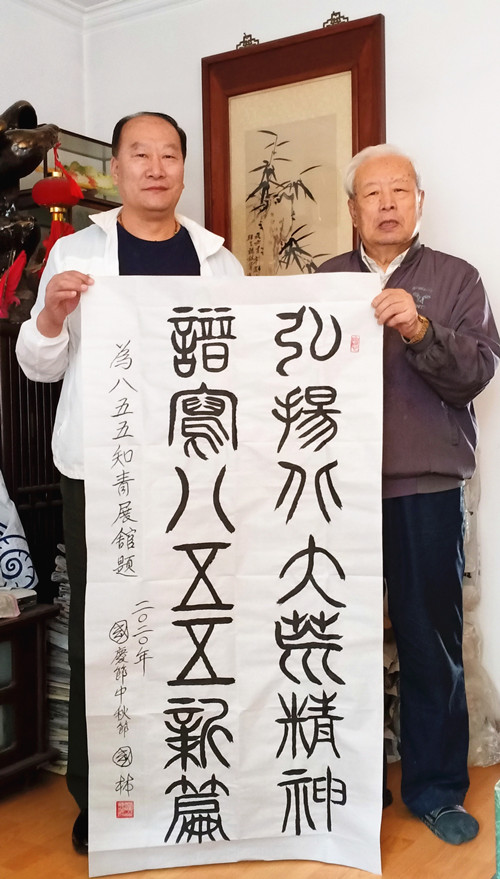 弘揚北大荒精神
譜寫八五五新篇
為八五五知青展館題
二〇二〇年
國慶節中秋節 國林